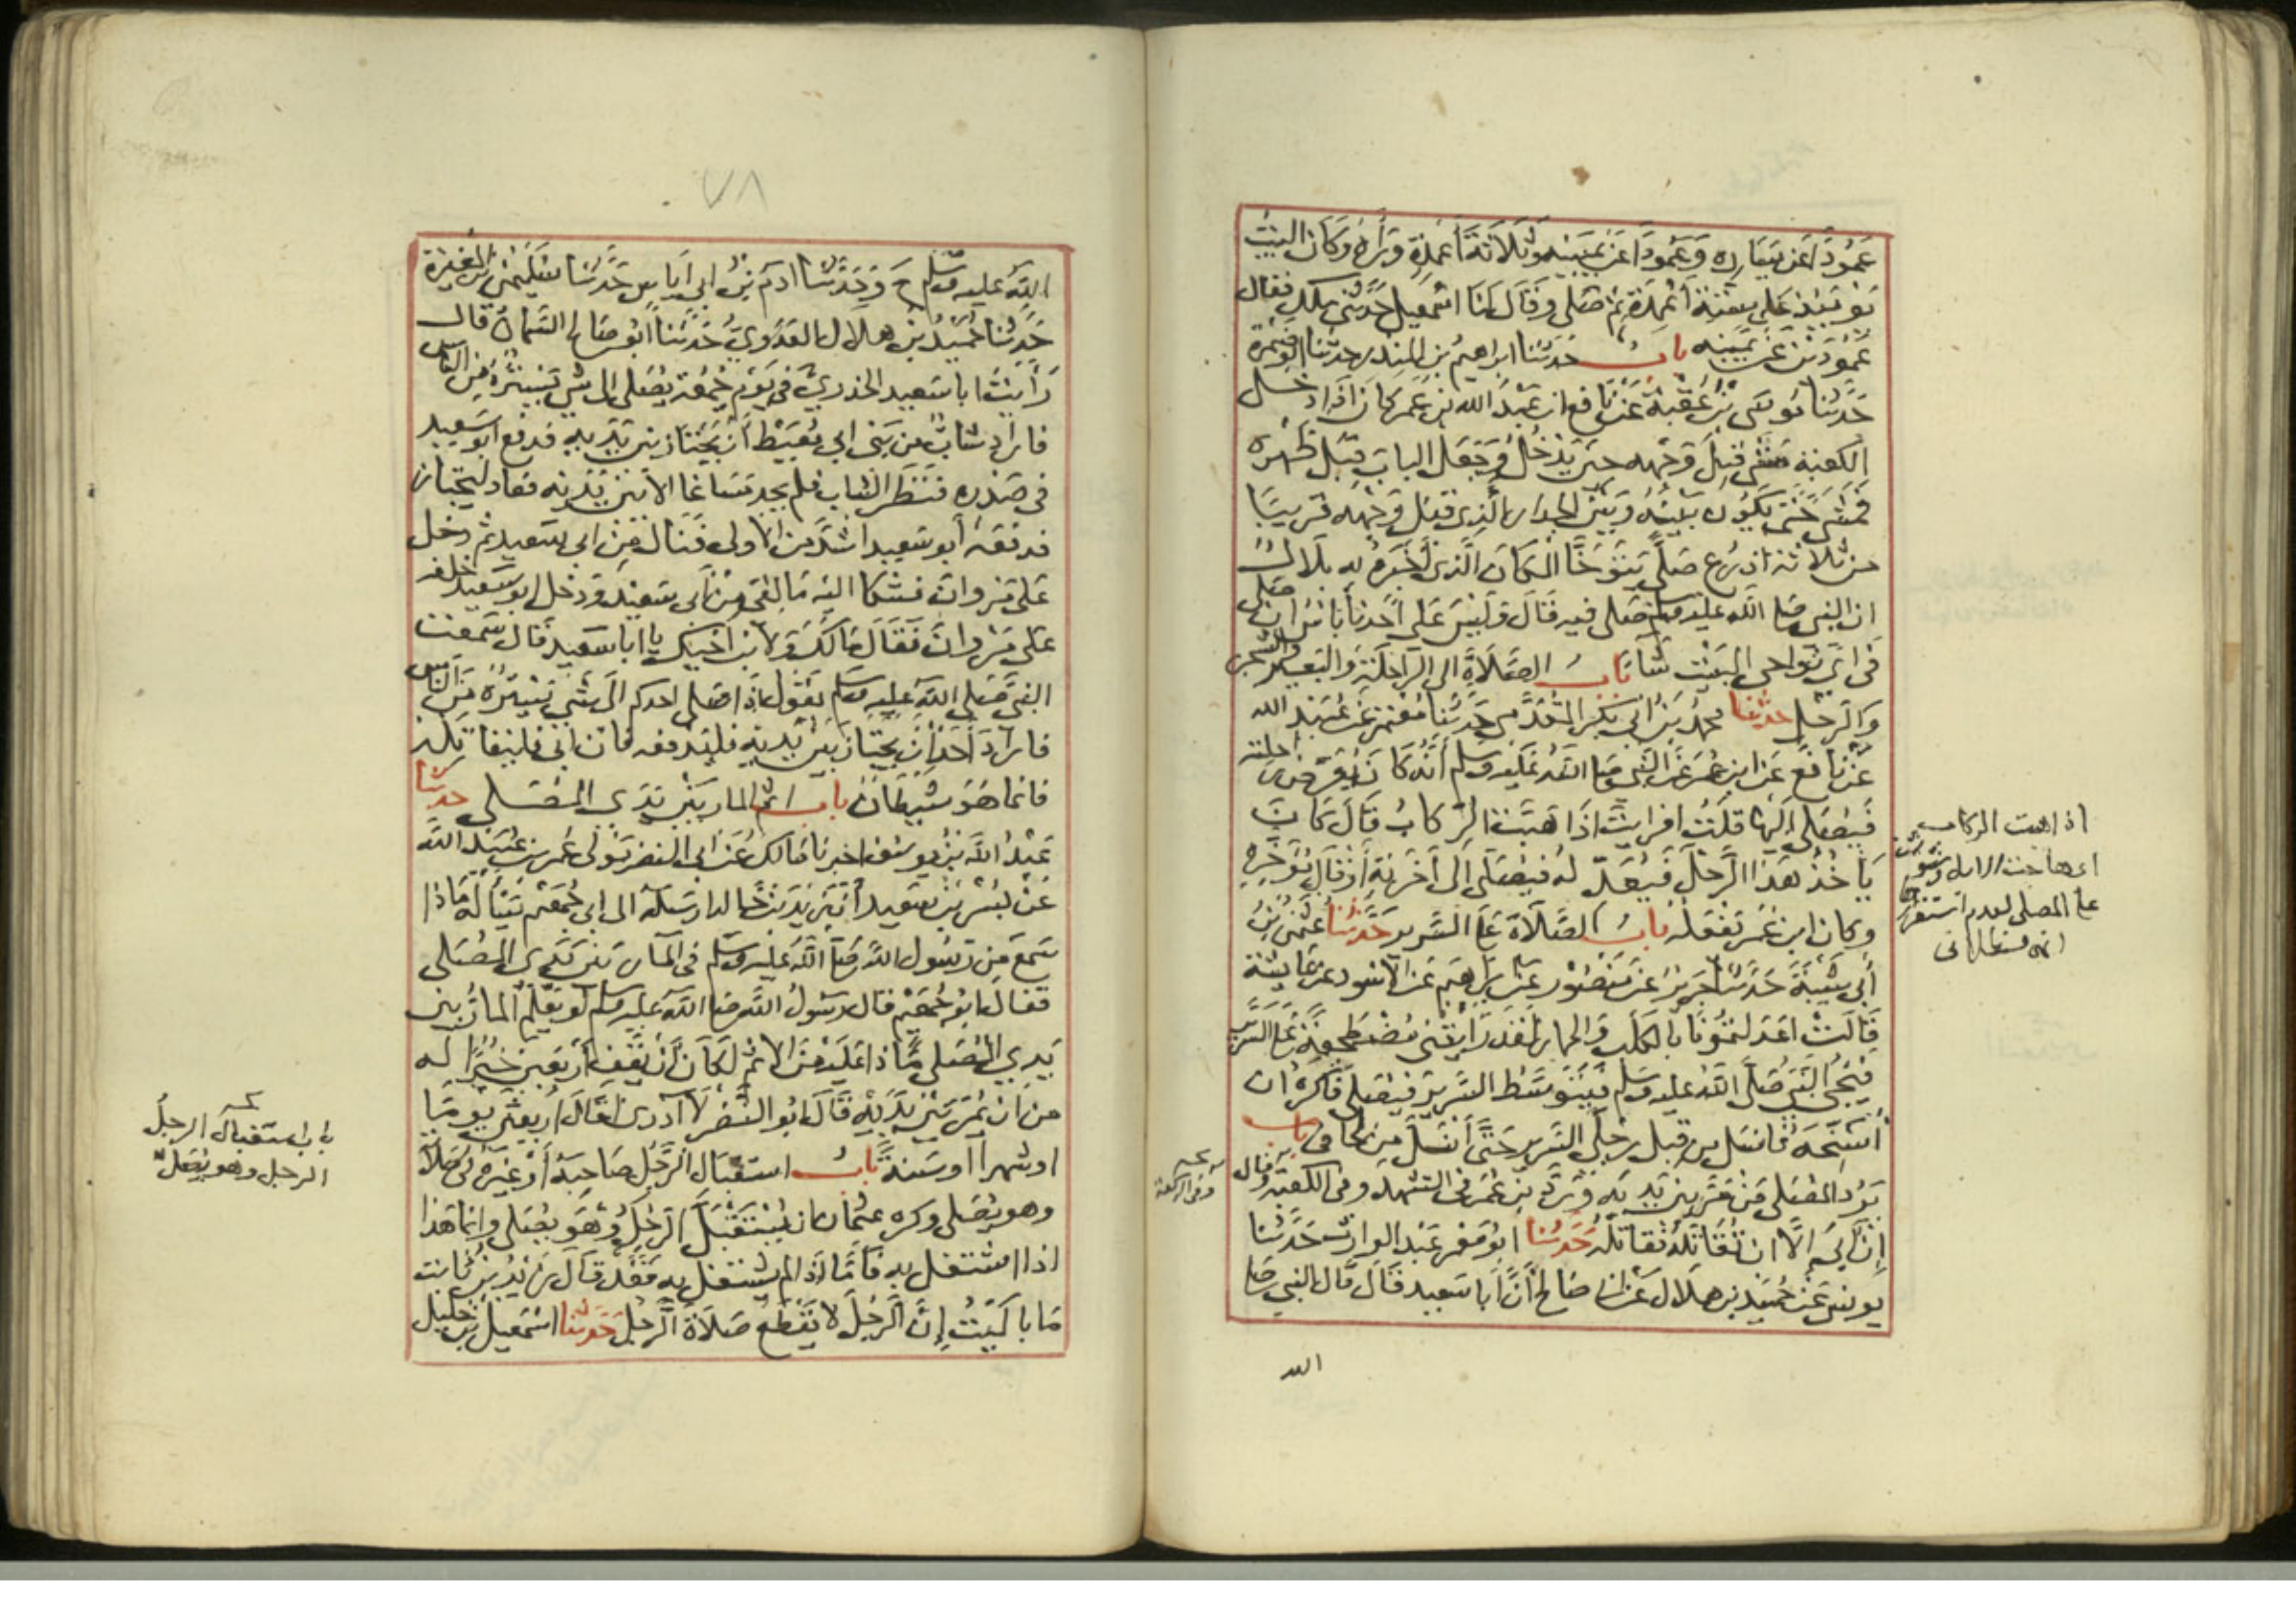 عَمُودًا عَن يَسَارِه وَعَمُودًا عَن يَمِينِه وَثَلَاثَةَ أَعمِدَةٍ وَرَاءَهُ وَكَانَ البَيتُ
يَومَئِذٍ عَلى سِتَّةِ أَعْمِدَةٍ ثم صَلى وَقَالَ لنَا اسْمعيل حَدَّثَنى مَلك فقال
عَمُودَيْنِ عَن يَمِينِه باب حَدَثنا ابراهيمُ بن المنذر حدثنا ابو ضمرة
حَدَّثَنا موسَى بْنُ عُقْبَةَ عَنْ نَافع ان عَبْدَ الله بن عُمَر كانَ اذَا دخل
الكعبَة مشى قِبَلَ وَجْهِه حين يَدْخُلُ وَجَعَل البابَ قِبَل ظهره
فمشى حَتى يَكُونَ بَيْنَهُ وَبَيْنَ الجدار الَّذِي قِبَل وَجْهه قريبًا
من ثلاثة اذرُع صَلَّى يَتَوَخَّا المكَانَ الَّذِى أَخْبَرَهُ بِه بلَالٌ
ان النبي صَلى الله عليه وسلم صَلى فيه قَالَ وَلَيْسَ عَلى أَحَدِنا بَأسٌ ان صَلى
فى اىِّ نَوَاحى البَيْتِ شَا بَابُ الصَّلَاةِ الى الرَاحِلَةِ وَالبَعِيرِ وَالشجر
وَالرَّحْلِ حدثنا محمدُ بنُ ابى بَكرٍ المُقَدَّمِى حَدثنا مُعْتمر عَن عُبَيد الله
عَنْ نافع عَن ابن عُمَرَ عَن النَّبى صَلى اللهُ عَلَيه وسلم أَنَّهُ كَانَ يُعَرِّضُ راحلته
فَيُصَلى اليْهَا قلْتُ افرايْتَ اذَا هَبَّتِ الرّكابُ قَالَ كَانَ
يَأخُذُ هَذَا الرَّحْلَ فَيُعَدِّلُهُ فيُصَلى الَى أَخَرَتِهِ أَوْ قَالَ مُؤَخَّرِهِ
وكان ابن عُمَر يَفْعَله بابُ الصَّلَاةِ عَلى السَّرير حَدَّثَنَا عُثمٰنُ بْنُ
أَبى شَيْبَةَ حَدَثنا جَرِيرٌ عَن مَنْصُور عَن ابْرَاهيم عَن الاسْود عن عَايشة
قَالَتْ اعَدَلتمُونَا بِالكَلْبِ وَالحمارِ لَقَدْ رَأَيْتُنى مُضْطَجِعَةً عَلى السَّرير
فَيَجىُ النَّبي صَلى اللهُ عليه وسَلم فَيَتَوَسَّط السَّرِيرَ فيُصَلى فَاكرَهُ ان
أُسَنِّحَهُ فَانْسَل من قِبَل رِجْلَى السَّرير حَتَّى أَنْسَلَّ مِن لحافى باب
يَرُدّ المُصَلى مَنْ مَرَّ بَيْنَ يَدَيه وَرَدَّ ابن عُمَر فى التشهد وفى الكعبة وقال
إِنْ أَبَى الَّا ان تُقَاتِلَهُ فقاتِلْه حَدثنا ابُو مَعْمر عَبْدُ الوارث حَدَّثنا
يونس عَن حُمَيْد بن هِلَال عَن ابى صَالح أَنَّ أَبَا سَعِيد قَالَ قَال النبى صَلى
الله
اذا هبت الركاب
اى هاجت الابل وشوشت
على المصلى لعدم استقرارها
وفى الركعة
٧٨
الله عليه وسلم ح وَحَدَّثَنَا ادَمُ بْنُ ابى اِيَاس حَدَّثَنَا سُلَيمٰنُ بن المُغِيرَة
حَدَّثَنا حُمَيْدُ بْنُ هلال العَدَوِيُّ حَدَثَنَا أَبُو صَالح السَّمانُ قال
رَأَيْتُ ابا سَعِيد الخدريَّ فى يَوْمِ جُمُعَةٍ يُصَلى الى شى يَسْتُرُهُ مِن الناس
فاراد شابٌّ من بَنى ابى مُعَيْطٍ أَنْ يَجْتَازَ بين يَدَيه فدفع ابو سَعِيد
فى صَدْره فَنَظَر الشاب فلم يجد مَسَاغًا الا بَيْنَ يَدَيْه فعَاد ليجتاز
فدفعَه أبو سَعِيد اشَدَّ من الاولى فَنَالَ مِن ابى سَعِيد ثم دخل
عَلى مَرْوانَ فشكا اليْه مَا لِقى مِنْ أَبى سَعِيْد وَدخل ابو سَعِيد خلفه
عَلى مَرْوانَ فَقَالَ مَا لَكَ وَلابْن أَخِيكَ يا ابا سَعِيد قَال سَمعْت
النبي صَلى اللهُ عليه وسلم يَقُول اذَا صَلى احدكم الَى شَى يَسْتُرُه مِنَ النَّاس
فاراد أَحَدٌ أَنْ يَجْتَازَ بَيْنَ يَدَيْه فليَدْفعه فان ابى فليُقاتِلْهُ
فانما هُوَ شَيْطَانٌ باب اثم المار بَيْنَ يَدَى المُصَلى حدثنا
عَبْدُ اللَّه بنُ يُوسُفَ اخبرنا مَالكٌ عَن ابى النضر مَوْلى عُمر بن عُبَيْد اللَّه
عَنْ بُسْرِ بْن سَعِيد أنّ زَيدَ بْنَ خَالدٍ ارسَلَه الى ابى جُهَيْمٍ يَسْأَلُهُ مَاذَا
سَمعَ مِن رَسُول اللهِ صَلى اللهُ عَليه وسَلم فى المَارّ بَيْنَ يَدَى المُصَلى
فقال أَبُو جُهَيْمٍ قال رسُولُ اللهِ صَلى الله عليه وسلم لَو يَعْلمُ المَارُّ بين
يَدَي المُصَلى مَّاذَا عَلَيْهِ مِنَ الاثم لَكَانَ أَنْ يَقِفَ أَرْبَعِينَ خَيْرًا لَه
من ان يَمُرَّ بَيْنَ يَدَيْهِ قَالَ ابُو النَّضر لَا أدرى اقَالَ اربَعِينَ يَوْمًا
او شهرًا او سَنةً بابُ استقبَال الرَّجُل صَاحِبَهُ أَوْ غَيْرَهُ فى صَلَاته
وهو يُصَلى وكره عثمان ان يُسْتَقْبَلَ الرَّجُلُ وَهُوَ يُصَلى وانما هَذا
اذا اشتغل به فَأَمَّا اذَا لم يشتغل به فَقَد قَالَ زَيْدُ بْنُ ثَابت
مَا بَالَيْتُ إِنَّ الرَّجُلَ لا يَقْطَعُ صَلَاةَ الرَّجُل حَدثنا اسْمٰعِيل بن خليل
باب استقبال الرجل
الرجل وهو يُصَلى